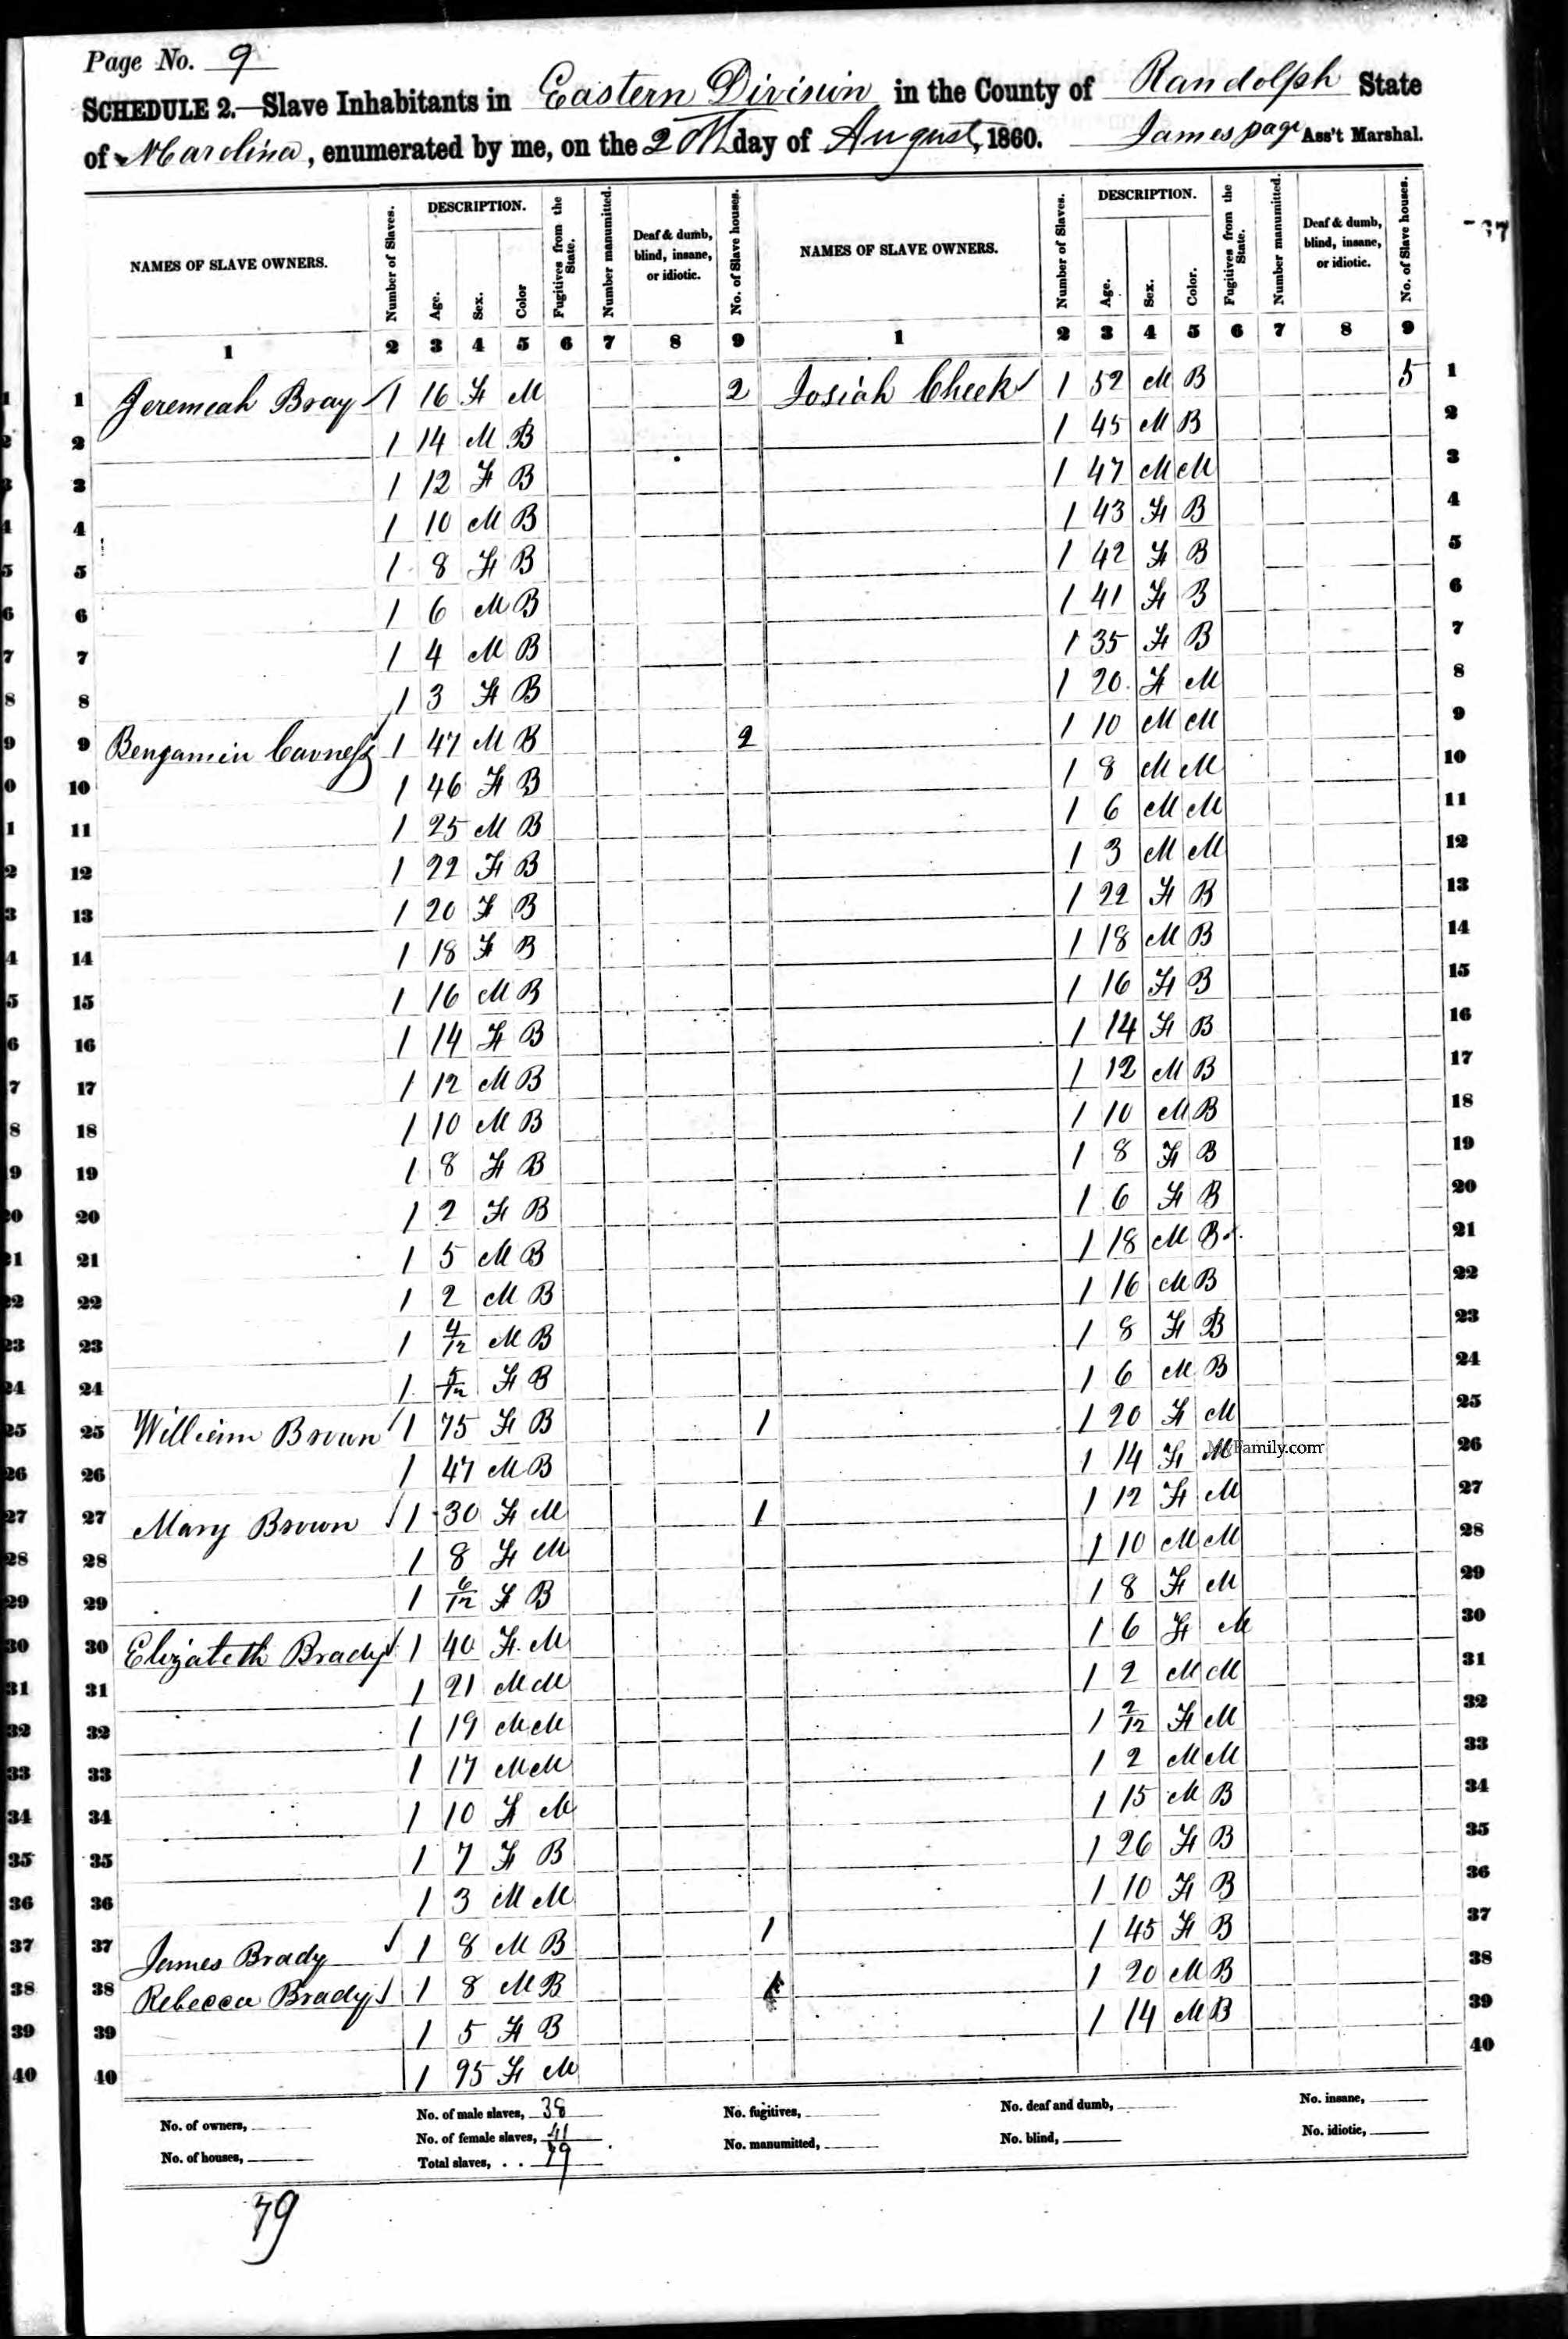 Page No. 9
SCHEDULE 2.—Slave Inhabitants in Eastern Division in the County of Randolph State
of N Carolina, enumerated by me, on the 20th day of August, 1860. James page Ass't Marshal.
NAMES OF SLAVE OWNERS. Number of Slaves. DESCRIPTION. Age. Sex. Color Fugitives from the State. Number manumitted. Deaf & dumb, blind, insane, or idiotic. No. of Slave houses. NAMES OF SLAVE OWNERS. Number of Slaves. DESCRIPTION. Age. Sex. Color. Fugitives from the State. Number manumitted. Deaf & dumb, blind, insane, or idiotic. No. of Slave houses.
1 2 3 4 5 6 7 8 9 1 2 3 4 5 6 7 8 9
1 Jeremeah Bray 1 16 F M 2 Josiah Cheek 1 52 M B 5 1
2 1 14 M B 1 45 M B 2
3 1 12 F B 1 47 M M 3
4 1 10 M B 1 43 F B 4
5 1 8 F B 1 42 F B 5
6 1 6 M B 1 41 F B 6
7 1 4 M B 1 35 F B 7
8 1 3 F B 1 20 F M 8
9 Bengamin Cavness 1 47 M B 2 1 10 M M 9
10 1 46 F B 1 8 M M 10
11 1 25 M B 1 6 M M 11
12 1 22 F B 1 3 M M 12
13 1 20 F B 1 22 F B 13
14 1 18 F B 1 18 M B 14
15 1 16 M B 1 16 F B 15
16 1 14 F B 1 14 F B 16
17 1 12 M B 1 12 M B 17
18 1 10 M B 1 10 M B 18
19 1 8 F B 1 8 F B 19
20 1 2 F B 1 6 F B 20
21 1 5 M B 1 18 M B 21
22 1 2 M B 1 16 M B 22
23 1 4/12 M B 1 8 F B 23
24 1 /12 F B 1 6 M B 24
25 William Brown 1 75 F B 1 1 20 F M 25
26 1 47 M B 1 14 F M 26
MyFamily.com
27 Mary Brown 1 30 F M 1 1 12 F M 27
28 1 8 F M 1 10 M M 28
29 1 6/12 F B 1 8 F M 29
30 Elizabeth Brady 1 40 F M 1 6 F M 30
31 1 21 M M 1 2 M M 31
32 1 19 M M 1 2/12 F M 32
33 1 17 M M 1 2 M M 33
34 1 10 F M 1 15 M B 34
35 1 7 F B 1 26 F B 35
36 1 3 M M 1 10 F B 36
37 James Brady 1 8 M B 1 1 45 F B 37
38 Rebecca Brady 1 8 M B 1 20 M B 38
39 1 5 F B 1 14 M B 39
40 1 95 F M 40
No. of owners, No. of male slaves, 38 No. fugitives, No. deaf and dumb, No. insane,
No. of houses, No. of female slaves, 41 No. manumitted, No. blind, No. idiotic,
Total slaves, . . 79
79